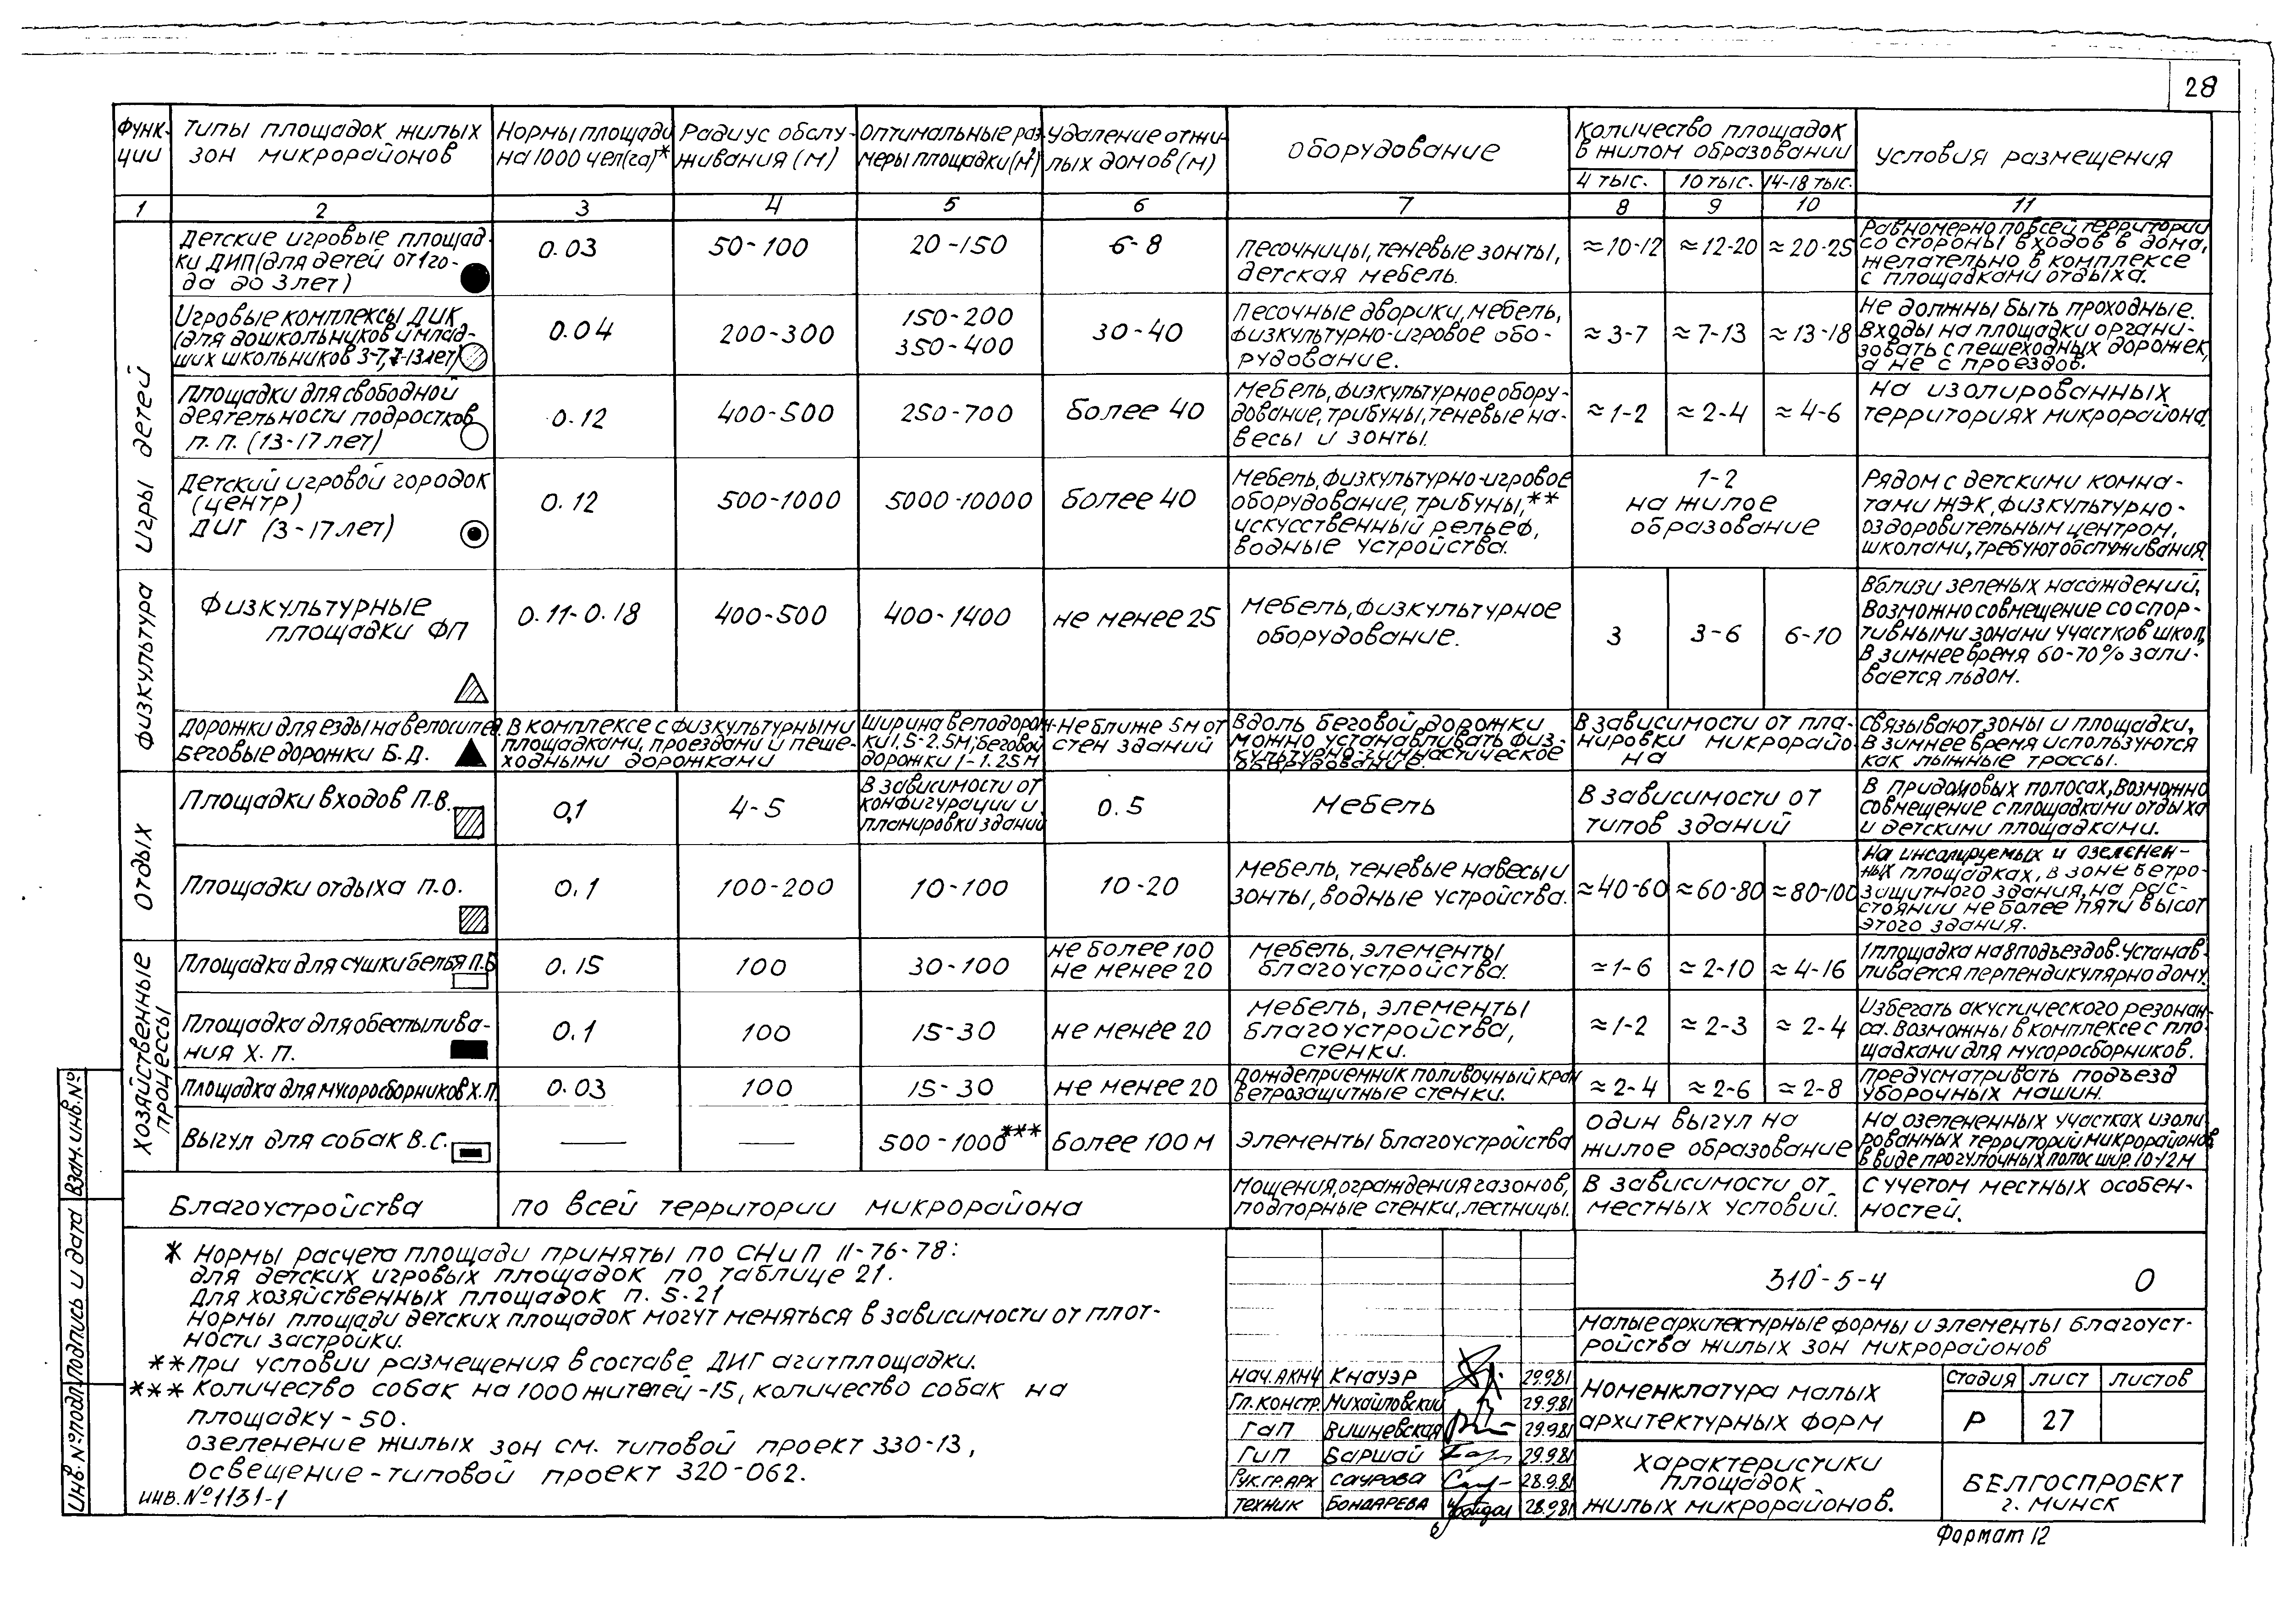 28
Функ-
ции
Типы площадок жилых
зон микрорайонов
Нормы площади
на 1000 чел(га)*
Радиус обслу-
живания (м)
Оптимальные раз-
меры площадки (м²)
Удаление от жи-
лых домов (м)
Оборудование
Количество площадок
в жилом образовании
4 тыс. 10 тыс. 14-18 тыс.
Условия размещения
1 2 3 4 5 6 7 8 9 10 11
Игры детей
Детские игровые площад-
ки ДИП (для детей от 1 го-
да до 3 лет)
0.03
50-100
20-150
6-8
Песочницы, теневые зонты,
детская мебель.
≈10-12 ≈12-20 ≈20-25
Равномерно по всей территории
со стороны входов в дома,
желательно в комплексе
с площадками отдыха.
Игровые комплексы ДИК
(для дошкольников и млад-
ших школьников 3-7, 7-13 лет)
0.04
200-300
150-200
350-400
30-40
Песочные дворики, мебель,
физкультурно-игровое обо-
рудование.
≈3-7 ≈7-13 ≈13-18
Не должны быть проходные.
Входы на площадки органи-
зовать с пешеходных дорожек,
а не с проездов.
Площадки для свободной
деятельности подростков
П.П. (13-17 лет)
0.12
400-500
250-700
более 40
Мебель, физкультурное обору-
дование, трибуны, теневые на-
весы и зонты.
≈1-2 ≈2-4 ≈4-6
На изолированных
территориях микрорайона.
Детский игровой городок
(центр)
ДИГ (3-17 лет)
0.12
500-1000
5000-10000
более 40
Мебель, физкультурно-игровое
оборудование, трибуны,**
искусственный рельеф,
водные устройства.
1-2
на жилое
образование
Рядом с детскими комна-
тами ЖЭК, физкультурно-
оздоровительным центром,
школами, требуют обслуживания.
Физкультура
Физкультурные
площадки ФП
0.11-0.18
400-500
400-1400
не менее 25
Мебель, физкультурное
оборудование.
3 3-6 6-10
Вблизи зеленых насаждений,
Возможно совмещение со спор-
тивными зонами участков школ,
В зимнее время 60-70% зали-
вается льдом.
Дорожки для езды на велосипед.
Беговые дорожки Б.Д.
В комплексе с физкультурными
площадками, проездами и пеше-
ходными дорожками
Ширина велодорож-
ки 1.5-2.5м; беговой
дорожки 1-1.25м
Не ближе 5м от
стен зданий
Вдоль беговой дорожки
можно устанавливать физ-
культурно-гимнастическое
оборудование.
В зависимости от пла-
нировки микрорайо-
на
Связывают зоны и площадки,
В зимнее время используются
как лыжные трассы.
Отдых
Площадки входов П.В.
0,1
4-5
В зависимости от
конфигурации и
планировки зданий
0.5
Мебель
В зависимости от
типов зданий
В придомовых полосах, возможно
совмещение с площадками отдыха
и детскими площадками.
Площадки отдыха П.О.
0.1
100-200
10-100
10-20
Мебель, теневые навесы и
зонты, водные устройства.
≈40-60 ≈60-80 ≈80-100
На инсолируемых и озеленен-
ных площадках, в зоне ветро-
защитного здания, на рас-
стоянии не более пяти высот
этого здания.
Хозяйственные
процессы
Площадка для сушки белья П.Б
0.15
100
30-100
не более 100
не менее 20
Мебель, элементы
благоустройства.
≈1-6 ≈2-10 ≈4-16
1 площадка на 8 подъездов. Устанав-
ливается перпендикулярно дому.
Площадка для обеспылива-
ния Х.П.
0.1
100
15-30
не менее 20
Мебель, элементы
благоустройства,
стенки.
≈1-2 ≈2-3 ≈2-4
Избегать акустического резонан-
са. Возможны в комплексе с пло-
щадками для мусоросборников.
Площадка для мусоросборников Х.П.
0.03
100
15-30
не менее 20
Дождеприемник поливочный кран
ветрозащитные стенки.
≈2-4 ≈2-6 ≈2-8
Предусматривать подъезд
уборочных машин.
Выгул для собак В.С.
500-1000***
более 100 м
Элементы благоустройства
Один выгул на
жилое образование
На озелененных участках изоли-
рованных территорий микрорайонов
в виде прогулочных полос шир. 10-12м
Благоустройства
по всей территории микрорайона
Мощения, ограждения газонов,
подпорные стенки, лестницы.
В зависимости от
местных условий.
С учетом местных особен-
ностей.
* Нормы расчета площади приняты по СНиП II-76-78:
для детских игровых площадок по таблице 21.
Для хозяйственных площадок п. 5.21
Нормы площади детских площадок могут меняться в зависимости от плот-
ности застройки.
** При условии размещения в составе ДИГ агитплощадки.
*** Количество собак на 1000 жителей-15, количество собак на
площадку-50.
Озеленение жилых зон см. типовой проект 330-13,
освещение-типовой проект 320-062.
инв. №1131-1
Инв. №подл. Подпись и дата Взам. инв. №
Нач. АКМ4 Кнауэр 29.9.81
Гл. констр. Михайловский 29.9.81
ГАП Вишневская 29.9.81
ГИП Баршай 29.9.81
Рук. гр. арх Саурова 28.9.81
Техник Бондарева 28.9.81
310-5-4 0
Малые архитектурные формы и элементы благоуст-
ройства жилых зон микрорайонов
Номенклатура малых
архитектурных форм
Стадия Лист Листов
Р 27
Характеристики
площадок
жилых микрорайонов.
БЕЛГОСПРОЕКТ
г. Минск
Формат 12